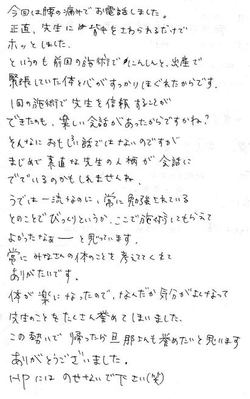 今回は腰の痛みでお電話しました。
正直、先生に背中をさわられるだけで
ホッとしました。
というのも前回の施術でにんしんと、出産で
緊張していた体と心がすっかりほぐれたからです。
1回の施術で先生を信頼することが
できたのも、楽しい会話があったからですかね?
そんなにおもしろい話ではないのですが
まじめで素直な先生の人柄が会話に
でているのかもしれませんね。
うでは一流なのに、常に勉強されている
とのことでびっくりというか、ここで施術してもらえて
よかったなぁーと思っています。
常にみなさんの体のことを考えてくれて
ありがたいです。
体が楽になったので、なんだか気分がよくなって
先生のことをたくさん誉めてしまいました。
この勢いで帰ったら旦那さんも誉めたいと思います
ありがとうございました。
HPにはのせないで下さい(笑)